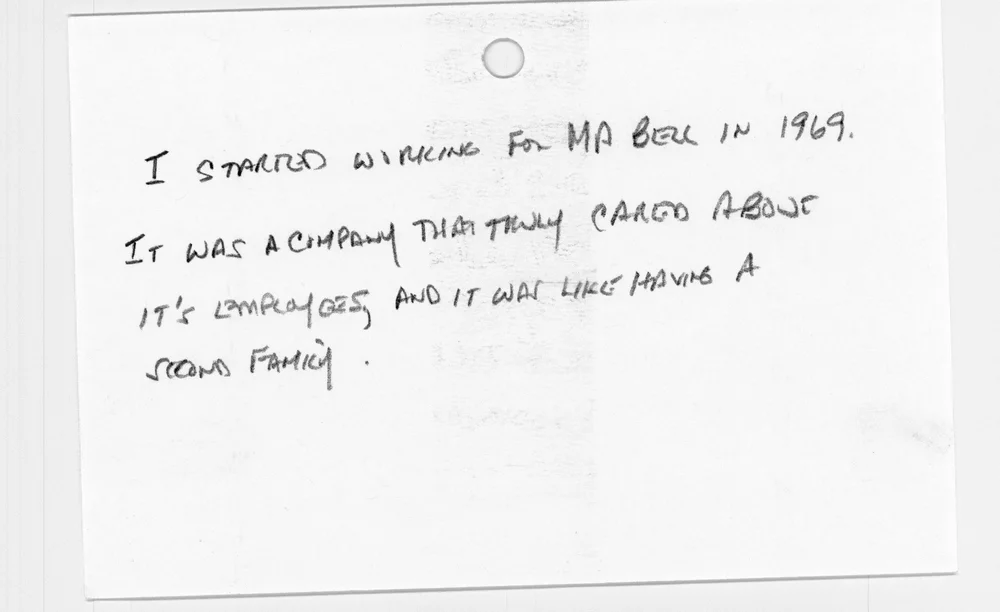 I STARTED WORKING FOR MA BELL IN 1969.
IT WAS A COMPANY THAT TRULY CARED ABOUT
IT'S EMPLOYEES, AND IT WAS LIKE HAVING A
SECOND FAMILY.